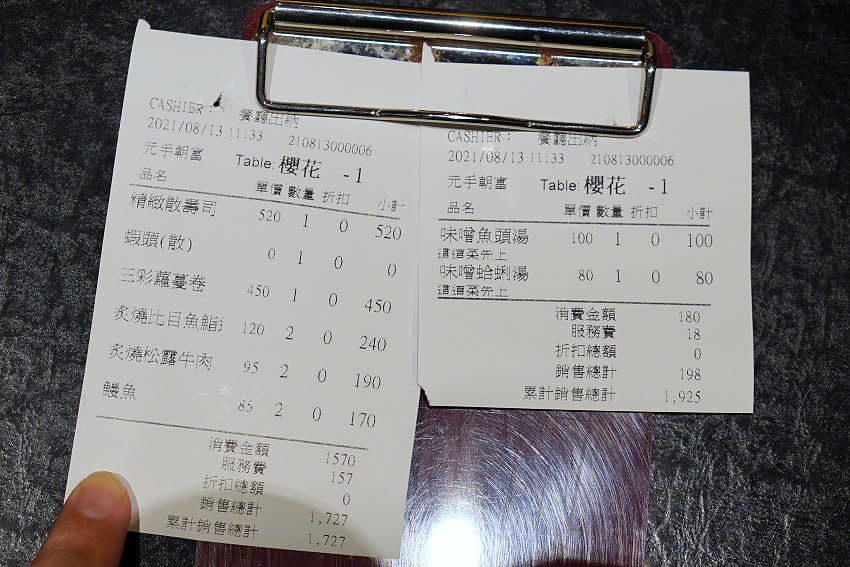 CASHIER： 餐廳出納
2021/08/13 11:33 210813000006
元手朝富 Table: 櫻花 -1
品名 單價 數量 折扣 小計
精緻散壽司 520 1 0 520
蝦頭(散) 0 1 0 0
三彩蘿蔓卷 450 1 0 450
炙燒比目魚鮨 120 2 0 240
炙燒松露牛肉 95 2 0 190
鰻魚 85 2 0 170
消費金額 1570
服務費 157
折扣總額 0
銷售總計 1,727
累計銷售總計 1,727
CASHIER： 餐廳出納
2021/08/13 11:33 210813000006
元手朝富 Table: 櫻花 -1
品名 單價 數量 折扣 小計
味噌魚頭湯 100 1 0 100
這道菜先上
味噌蛤蜊湯 80 1 0 80
這道菜先上
消費金額 180
服務費 18
折扣總額 0
銷售總計 198
累計銷售總計 1,925